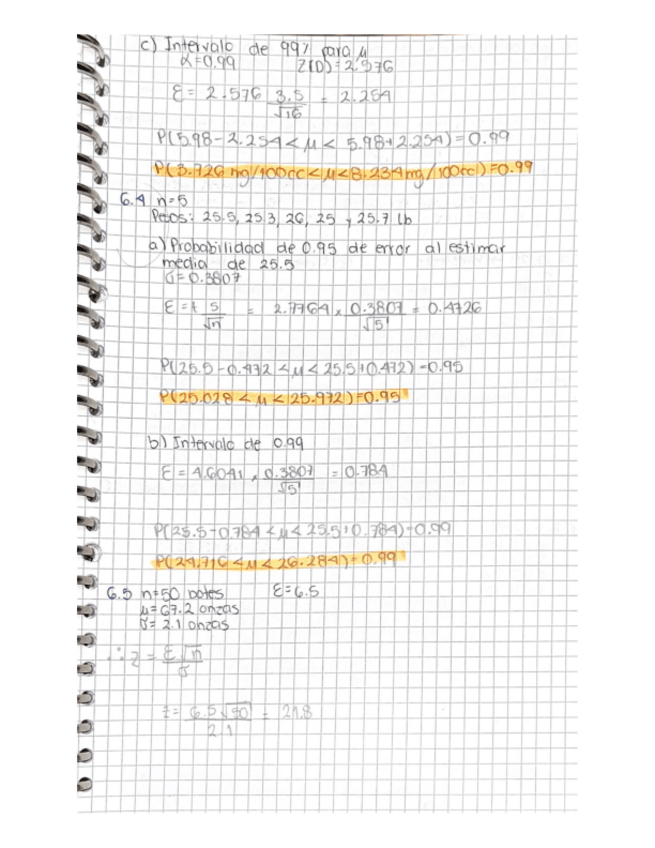 c) Intervalo de 99% para μ
α=0.99 Z(D)=2.576
ε = 2.576 3.5/√16 = 2.254
P(5.98-2.254<μ< 5.98+2.254)=0.99
P(3.726 mg/100cc<μ<8.234mg/100cc)=0.99
6.4 n=5
Pesos: 25.5, 25.3, 26, 25 y 25.7 lb
a) Probabilidad de 0.95 de error al estimar
media de 25.5
σ=0.3807
ε = t s/√n = 2.7764 x 0.3807/√5 = 0.4726
P(25.5-0.472<μ<25.5+0.472)=0.95
P(25.028<μ<25.972)=0.95
b) Intervalo de 0.99
ε = 4.6041 x 0.3807/√5 = 0.784
P(25.5-0.784<μ<25.5+0.784)=0.99
P(24.716<μ<26.284)=0.99
6.5 n=50 botes ε=6.5
μ=67.2 onzas
σ=2.1 onzas
∴ z = ε√n/σ
z = 6.5√50/2.1 = 21.8